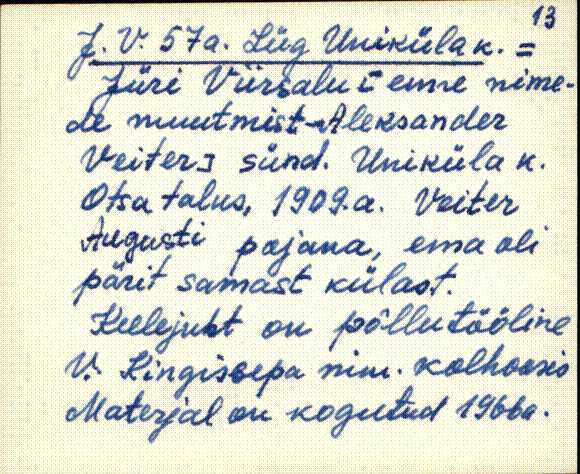 13
J. V. 57a. Lüg Uniküla k. =
Jüri Viirsalu [enne nime-
de muutmist - Aleksander
Veiter] sünd. Uniküla k.
Otsa talus, 1909.a. Veiter
Augusti pojana, ema oli
pärit samast külast.
Keelejuht on põllutööline
V. Kingissepa nim. kolhoosis
Materjal on kogutud 1966a.